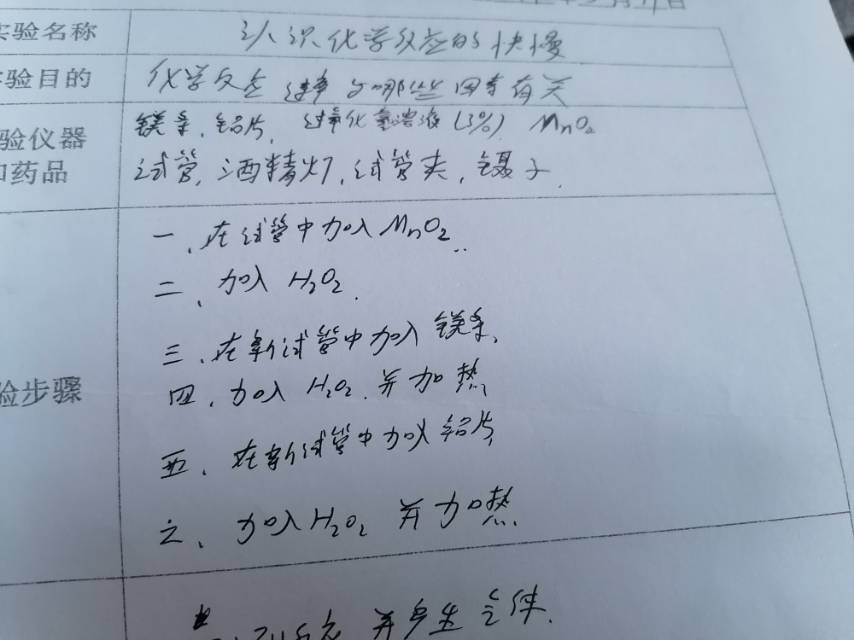 实验名称 认识化学反应的快慢
验目的 化学反应速率与哪些因素有关
验仪器 镁条，铝片，过氧化氢溶液（3%），MnO₂
药品 试管，酒精灯，试管夹，镊子
一、在试管中加入MnO₂
二、加入H₂O₂.
三、在新试管中加入镁条
四、加入H₂O₂并加热
验步骤
五、在新试管中加入铝片
六、加入H₂O₂并加热
并产生气体.